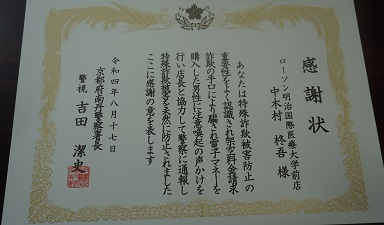 感謝状
ローソン明治国際医療大学前店
中木村 柊吾 様
あなたは特殊詐欺被害防止の
重要性をよく認識され架空料金請求
詐欺の手口により騙され電子マネーを
購入した男性に注意喚起の声かけを
行い店長と協力して警察に通報し
特殊詐欺被害を未然に防止されました
ここに感謝の意を表します
令和四年八月十七日
京都府南丹警察署長
警視 吉田 潔史